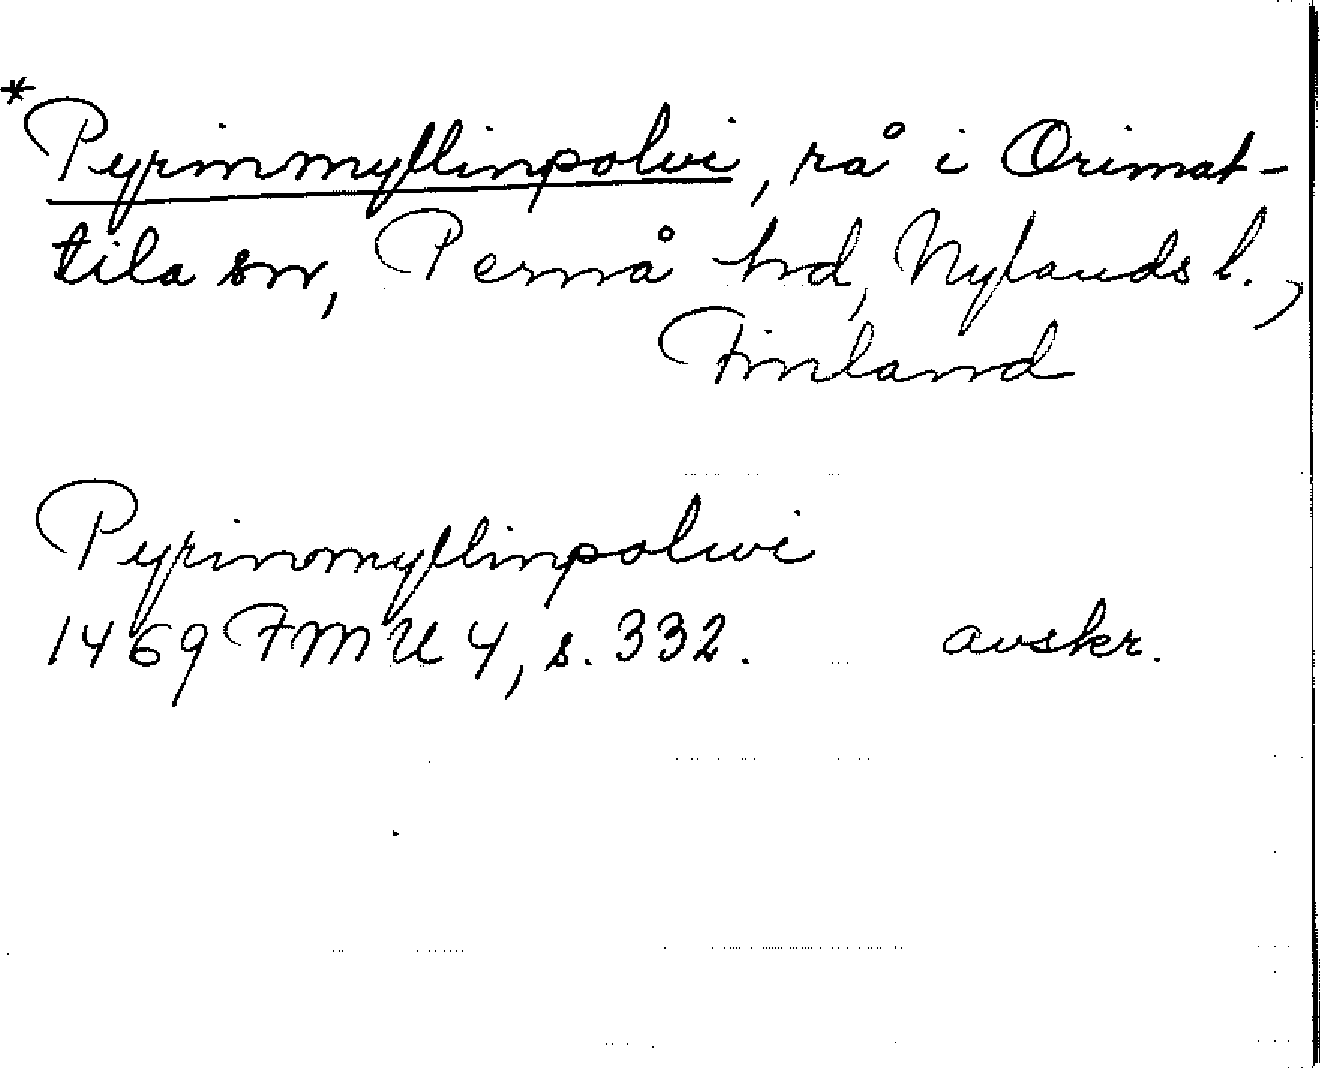 *
Pyrinmyllinpolvi, rå i Orimat-
tila sn, Pernå hd, Nylands l.,
Finland
Pyrinomyllinpolwi
1469 FMU 4, s. 332. avskr.